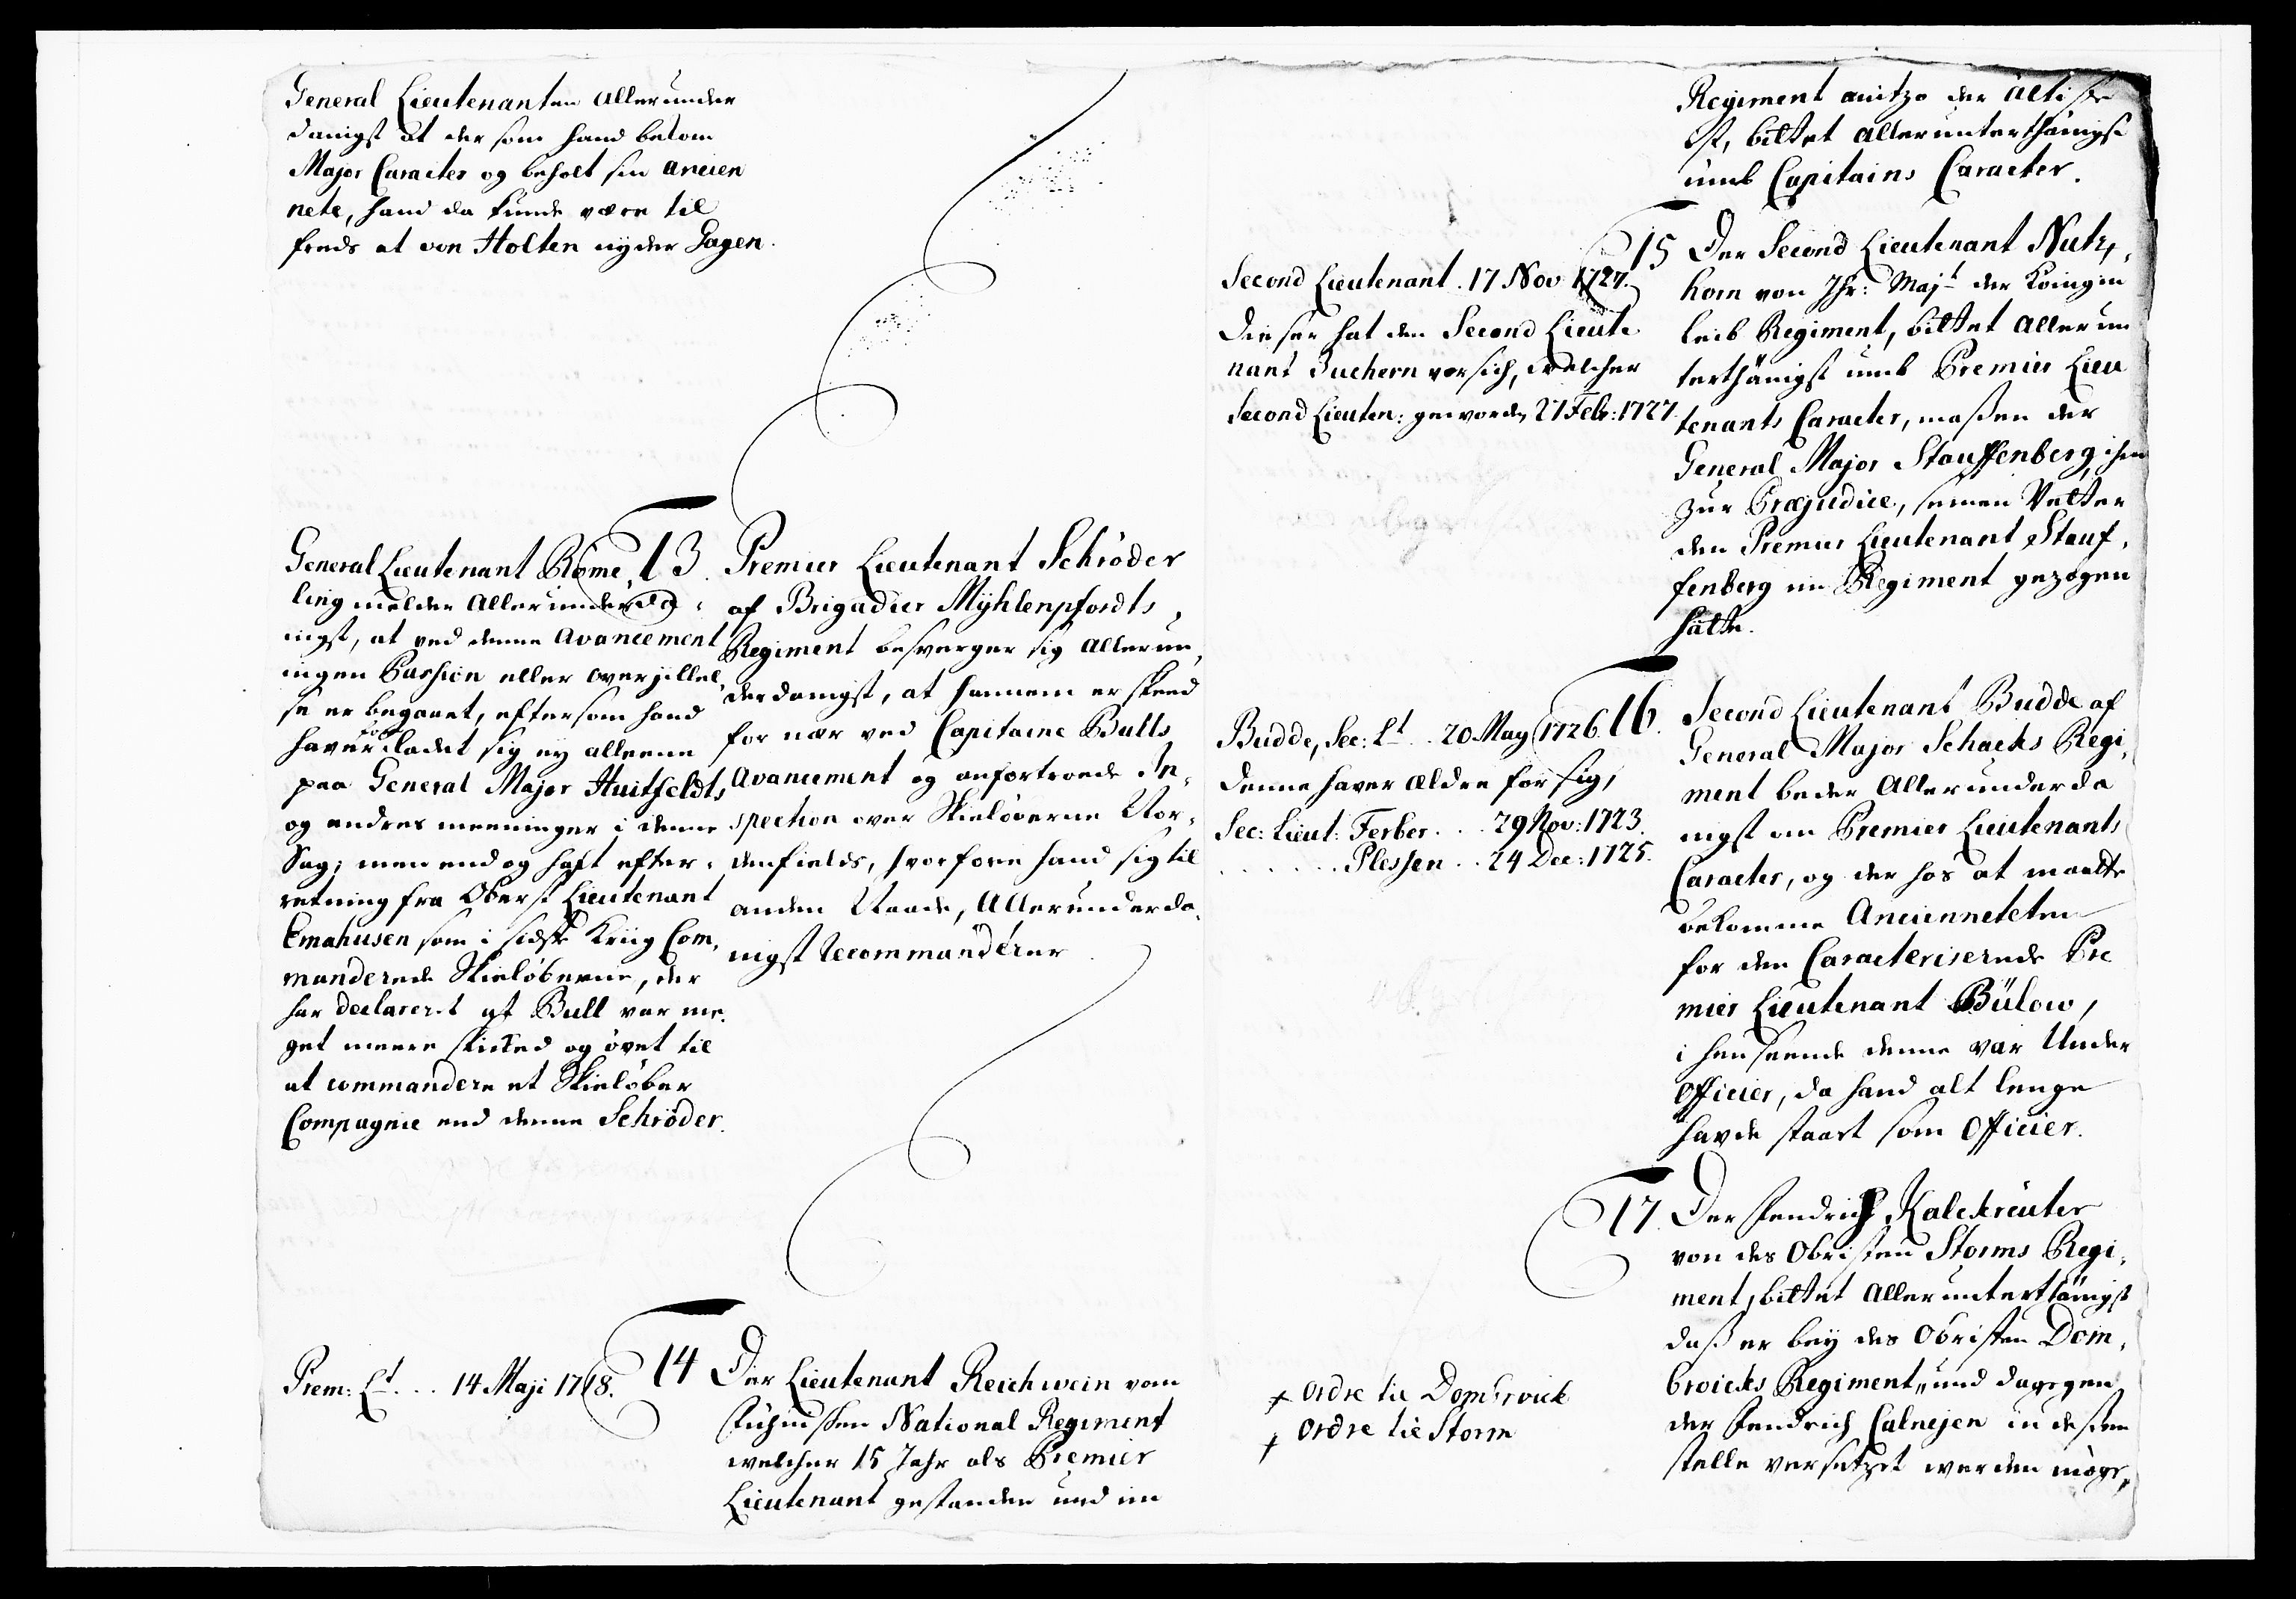 General Lieutenanten allerunder
danigst at der som hand bekom
Major Caracter og beholt sin ancien
netè, hand da kunde være til
freds at von Holten nyder Gagen.
General Lieutenant Röme,
ling melder Allerunderda,
nigst, at ved denne Avancement
ingen Passion eller overjillel,
se er begaaet, eftersom hand
haver forladet sig ey alleene
paa General Major Huitfeldts
og andres meeninger i denne
Sag, men end og haft efter,
retning fra Oberst Lieutenant
Emahusen som i sidste Kriig Com,
manderede Skielöberne, der
har declareret at Bull var me,
get meere skicked og övet til
at commandere et Skielöber
Compagnie end denne Schröder.
13. Premier Lieutenant Schröder
af Brigadier Mÿhlenpfordts
Regiment besverger sig allerun,
derdanigst, at hannem er skeed
for nær ved Capitaine Bulls
Avancement og anfortroede In,
spection over Skielöberne Nor,
denfields, hvorfore hand sig til
anden Naade, Allerunderda,
nigst recommanderer
Prem: Lt. . . 14 Maji 1718.
14 Der Lieutenant Reichwein vom
National Regiment
welcher 15 Jahr als Premier
Lieutenant gestanden und im
Regiment anitzo der älteste
ist, bittet allerunterthänigst
umb Capitains Caracter.
Second Lieutenant. 17 Nov 1727.
Dieser hat den Second Lieute
nant Buchern vor sich, welcher
Second Lieuten: geworden 21 Febr: 1727.
15 Der Second Lieutenant Nutz,
horn von Ihr: Majt der Königin
Leib Regiment, bittet allerun
terthänigst umb Premier Lieu
tenants Caracter, maßen der
General Major Stauffenberg ihm
zur Præjudice, seinen Vetter
den Premier Lieutenant Stauf,
fenberg im Regiment gezogen
hätte.
Budde, Sec: Lt. . . 20 May 1726.
Denne haver ældre for sig,
Sec: Lieut: Ferber. . . 29 Nov: 1723.
. . . . . . Plessen. . . 24 Dec: 1725.
16. Second Lieutenant Budde af
General Major Schacks Regi,
ment beder Allerunderda
nigst om Premier Lieutenants
Caracter, og der hos at maatte
bekomme Anciennetéten
for den Caracteriserede Pre
mier Lieutenant Bülow,
i henseende denne var Under
Officier, da hand alt lenge
havde staaet som Officier.
17. Der Fendrich Kalckreuter
von des Obristen Storms Regi,
ment, bittet Allerunterthänigst
daß er beÿ des Obristen Dom,
broicks Regiment, und dagegen
der Fendrich Calnejen in deßen
stelle versetzet werden möge,
+ Ordre til Dombroick
+ Ordre til Storm